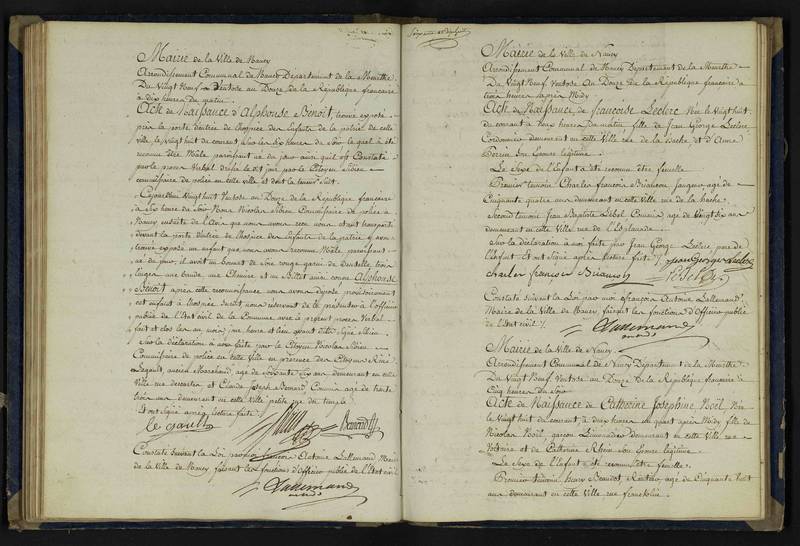 Mairie de la Ville de Nancy
Arrondissement Communal de Nancy Département de la Meurthe
Du Vingt Neuf Ventose an Douze de la République francaise
à dix heures du matin
Acte de Naissance d'Alphonse Benoît, trouvé exposé
près la porte d'entrée de l'hospice des Enfants de la patrie de cette
ville, le vingt huit du courant sur les six heures du soir le quel a été
reconnu être Mâle paraissant né du jour ainsi qu'il est Constaté
par le procès Verbal dressé le dit jour par le Citoyen
commissaire de police en cette ville et dont la teneur suit.
Cejourd'hui Vingt huit Ventose an Douze de la République francaise
à six heures du soir Nous Nicolas Commissaire de police à
Nancy ensuite de l'avis que nous avons reçu nous étant transporté
devant la porte d'entrée de l'hospice des Enfants de la patrie y avons
trouvé exposé un enfant que nous avons reconnu Mâle paraissant
né du jour, il avoit un bonnet de soie rouge garni de dentelle, trois
langes une bande une Chemise et un Billet ainsi conçu Alphonse
Benoît après cette reconnaissance nous avons déposé provisoirement
cet enfant à l'hospice Susdit nous réservant de le présenter à l'officier
public de l'Etat civil de la Commune avec le présent procès Verbal
fait et clos les an mois jour heure et lieu avant dits Signé
Sur la déclaration à nous faite par le Citoyen Nicolas
Commissaire de police en cette Ville en présence des Citoyens Réné
Legault, ancien Marchand, âgé de Soixante six ans demeurant en cette
Ville rue et Claude Joseph Bernard, Commis âgé de trente
trois ans demeurant en cette Ville petite rue du temple
Et ont signé après lecture faite.
le gault Bernard
Constaté suivant la Loi par moi françois Antoine Lallemand Maire
de la Ville de Nancy faisant les fonctions d'Officier public de l'Etat civil
Lallemand
Mairie de la Ville de Nancy
Arrondissement Communal de Nancy Département de la Meurthe
Du Vingt Neuf Ventose an Douze de la République francaise à
trois heures après Midy
Acte de Naissance de francoise Leclerc Née le Vingt huit
du courant à neuf heures du matin, fille de Jean George Leclerc
Cordonnier demeurant en cette Ville rue de la hache et d'Anne
Perrin son Epouse légitime
Le Sexe de l'Enfant a été reconnu être femelle
Premier temoin Charles francois Briancon âgé de
Cinquante quatre ans demeurant en cette Ville rue de la hache
Second temoin Jean Baptiste Lebel âgé de Vingt six ans
demeurant en cette Ville rue de l'Esplanade
Sur la déclaration à moi faite par Jean George Leclerc pere de
l'Enfant et ont Signé après lecture faite
Jean George Leclerc
charles francois Briancon Lebel
Constaté suivant la Loi par moi françois Antoine Lallemand
Maire de la Ville de Nancy faisant les fonctions d'Officier public
de l'Etat civil
Lallemand
Mairie de la Ville de Nancy
Arrondissement Communal de Nancy Département de la Meurthe
Du Vingt Neuf Ventose an Douze de la République francaise à
cinq heures du Soir
Acte de Naissance de Catherine Josephine Noël Née
le Vingt huit du courant à deux heures un quart après Midy fille de
Nicolas Noël, garcon Limonadier demeurant en cette Ville rue
Voltaire et de Catherine Rhein son Epouse légitime
Le Sexe de l'Enfant a été reconnu être femelle
Premier temoin henry Beaudot, Rentier, âgé de Cinquante huit
ans demeurant en cette Ville rue francklin